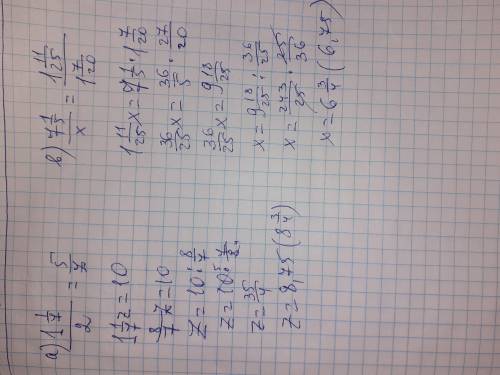 а) 1 1/7 / 2 = 5/z
1 1/7 z = 10
8/7 z = 10
z = 10 : 8/7
z = 10 · 7/8
z = 35/4
z = 8,75 (8 3/4)
в) 7 1/5 / x = 1 11/25 / 1 7/20
1 11/25 x = 7 1/5 · 1 7/20
36/25 x = 36/5 · 27/20
36/25 x = 9 18/25
x = 9 18/25 : 36/25
x = 243/25 · 25/36
x = 6 3/4 (6,75)